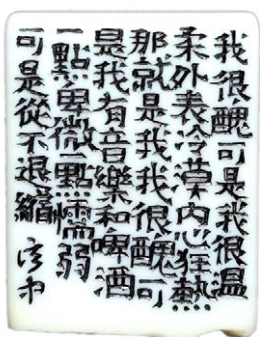 我很醜可是我很溫
柔外表冷莫内心狂熱
那就是我我很醜可
是我有音樂和啤酒
一點卑微一點懦弱
可是從不退縮